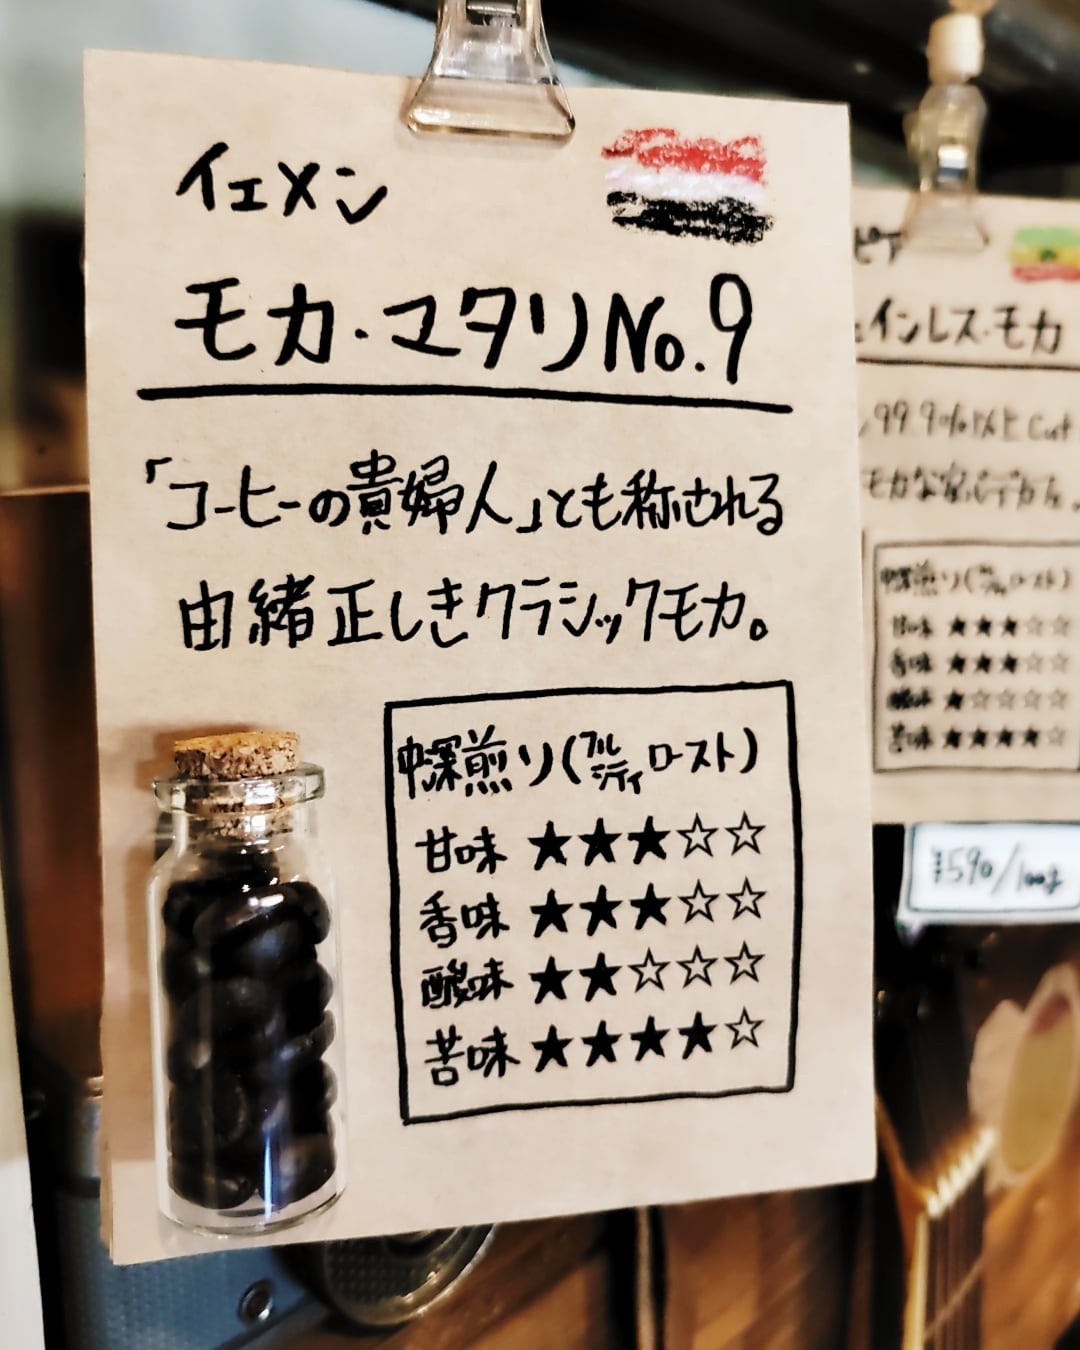 イエメン
モカ・マタリNo.9
「コーヒーの貴婦人」とも称される
由緒正しきクラシックモカ。
中深煎り(フルシティロースト)
甘味 ★★★☆☆
香味 ★★★☆☆
酸味 ★★☆☆☆
苦味 ★★★★☆
ピア
ェインレス・モカ
99.9%以上Cut
中深煎り(フルシティロースト)
甘味 ★★★☆☆
香味 ★★★☆☆
酸味 ★☆☆☆☆
苦味 ★★★★☆
¥590/100g